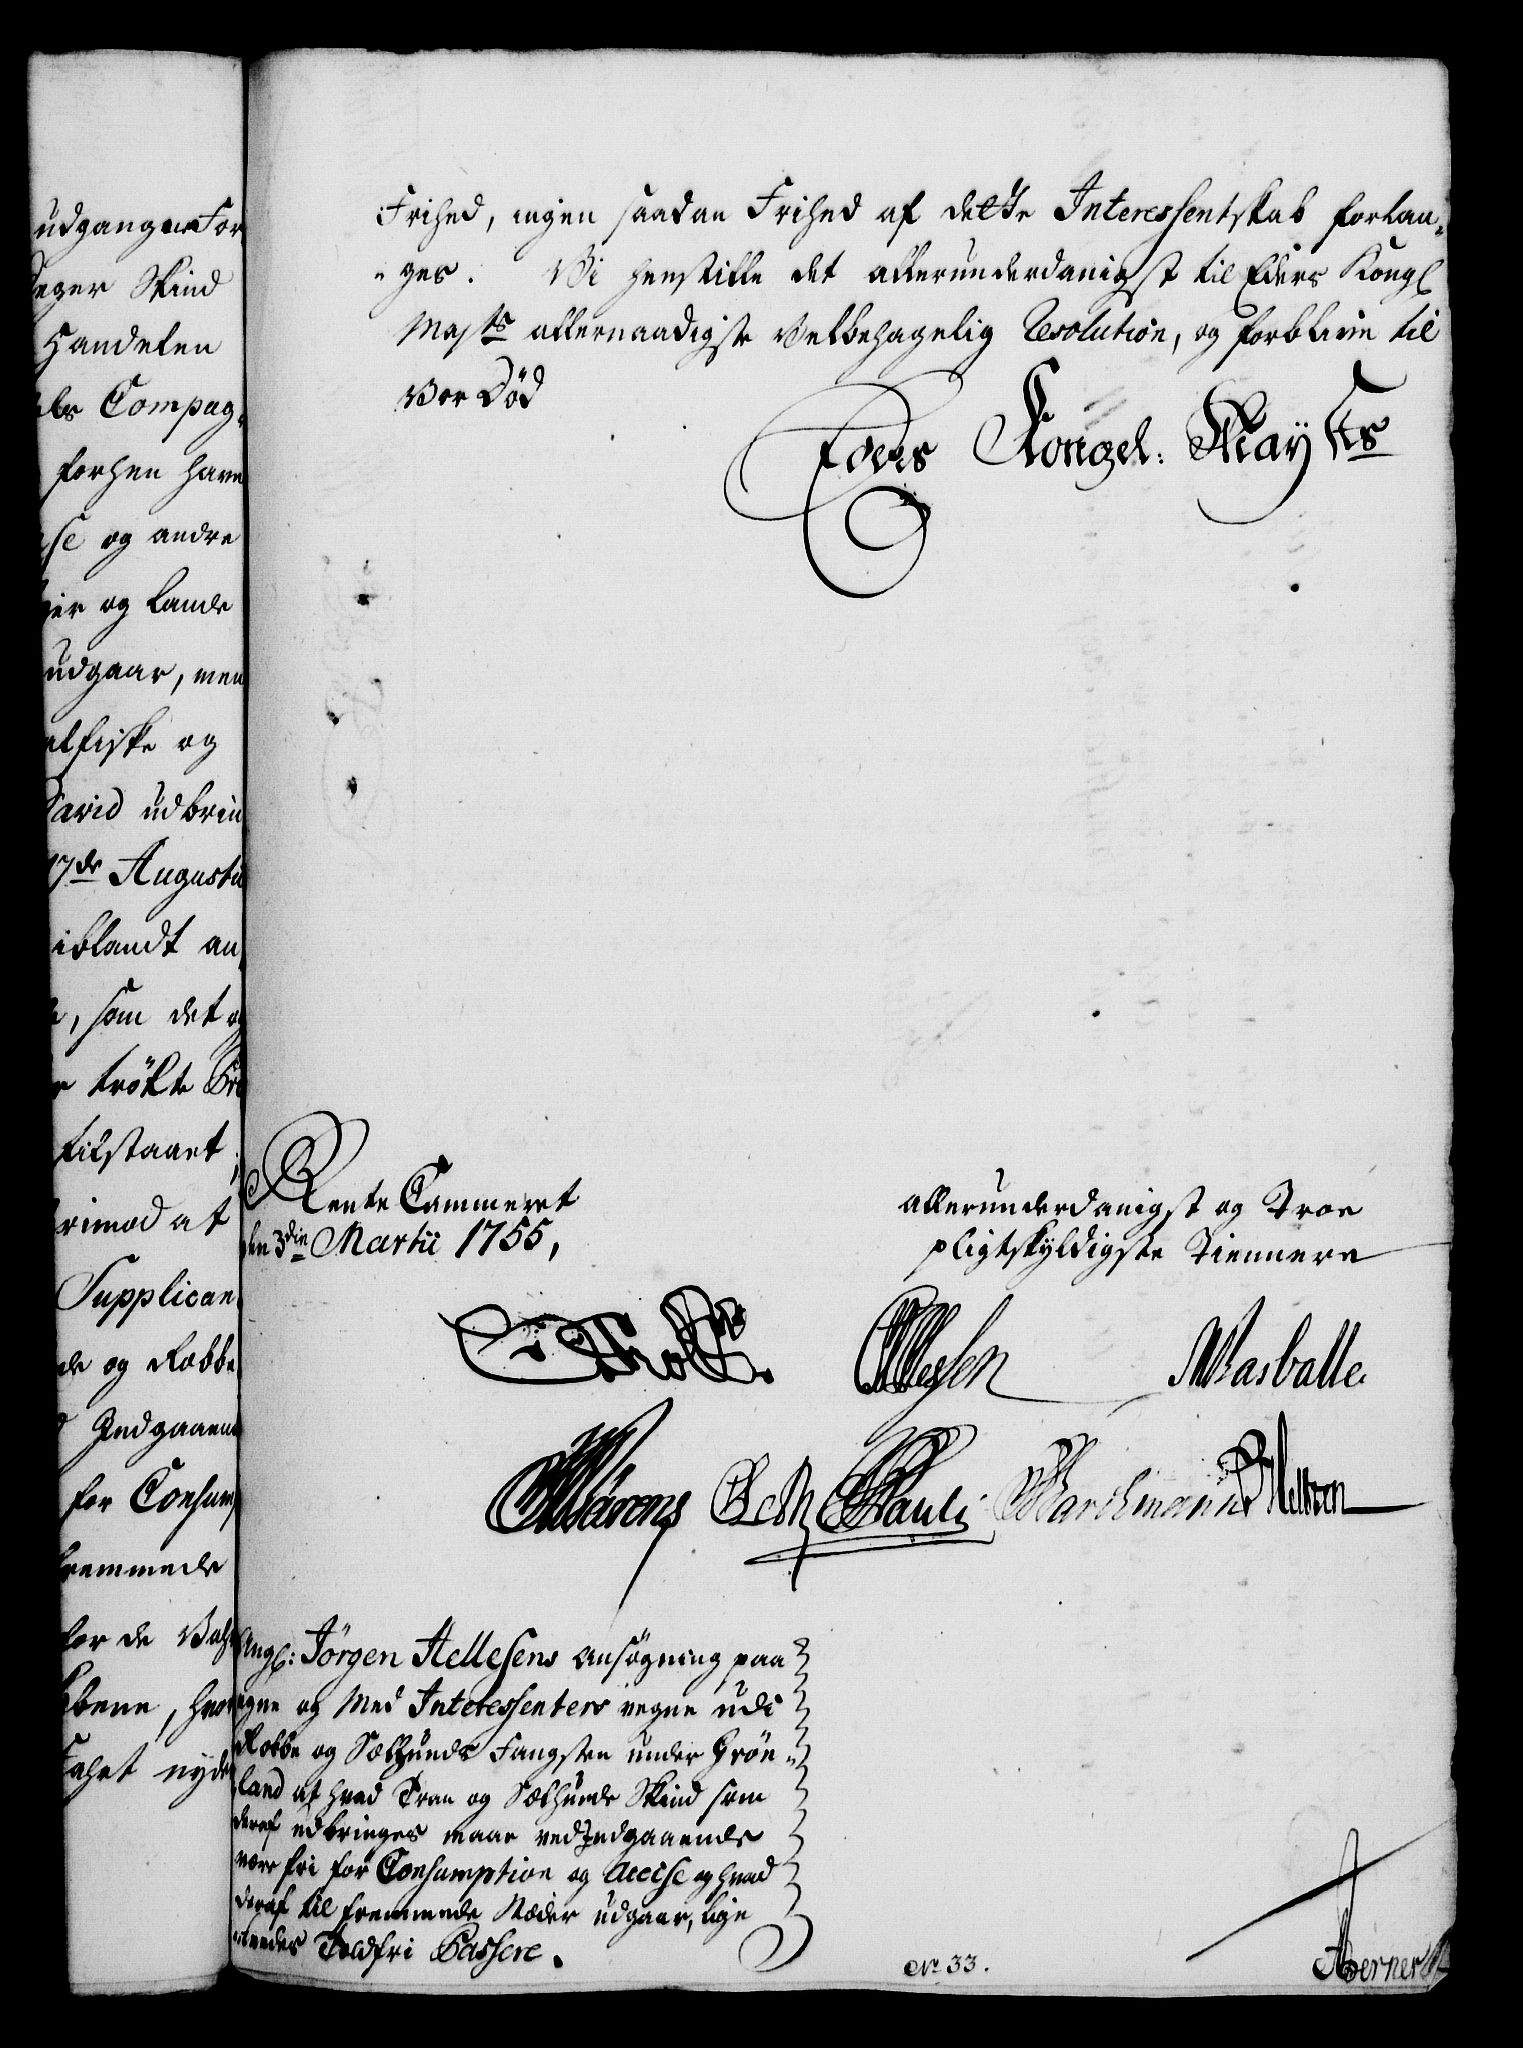 udgangen For
Skind
Handelen
Compag-
forhen have
og andre
og Lande
udgaar, men
og
udbrin
17de Augustii
iblandt an
, som det og
trökte
tilstaaet,
at
Supplican
de og Robbe
Indgaaende
for Consum,
fremmede
for de
, hvor
nyde
Frihed, ingen saadan Frihed af dette Interessentskab forlan-
-ges. Vi henstille det allerunderdanigst til Eders Kongl
Majts allernaadigste Velbehagelig Resolution, og forblive til
Vor Död
Eders Kongel: Mayts
Rente Cammeret
den 3die Martii 1755,
allerunderdanigst og Troe
pligtskyldigste Tiennere
Masballe.
Pauli
Angl: Jörgen Hellesens ansögning paa
egne og Med Interessenters vegne udi
Robbe og Sælhunde Fangsten under Grön-
land at hvad Tran og Sælhunde Skind som
deraf udbringes maae ved Indgaaende
være fri for Consumption og Accise og hvad
deraf til fremmede Stæder udgaar, lige
-ledes Toldfri Passere.
No 33.